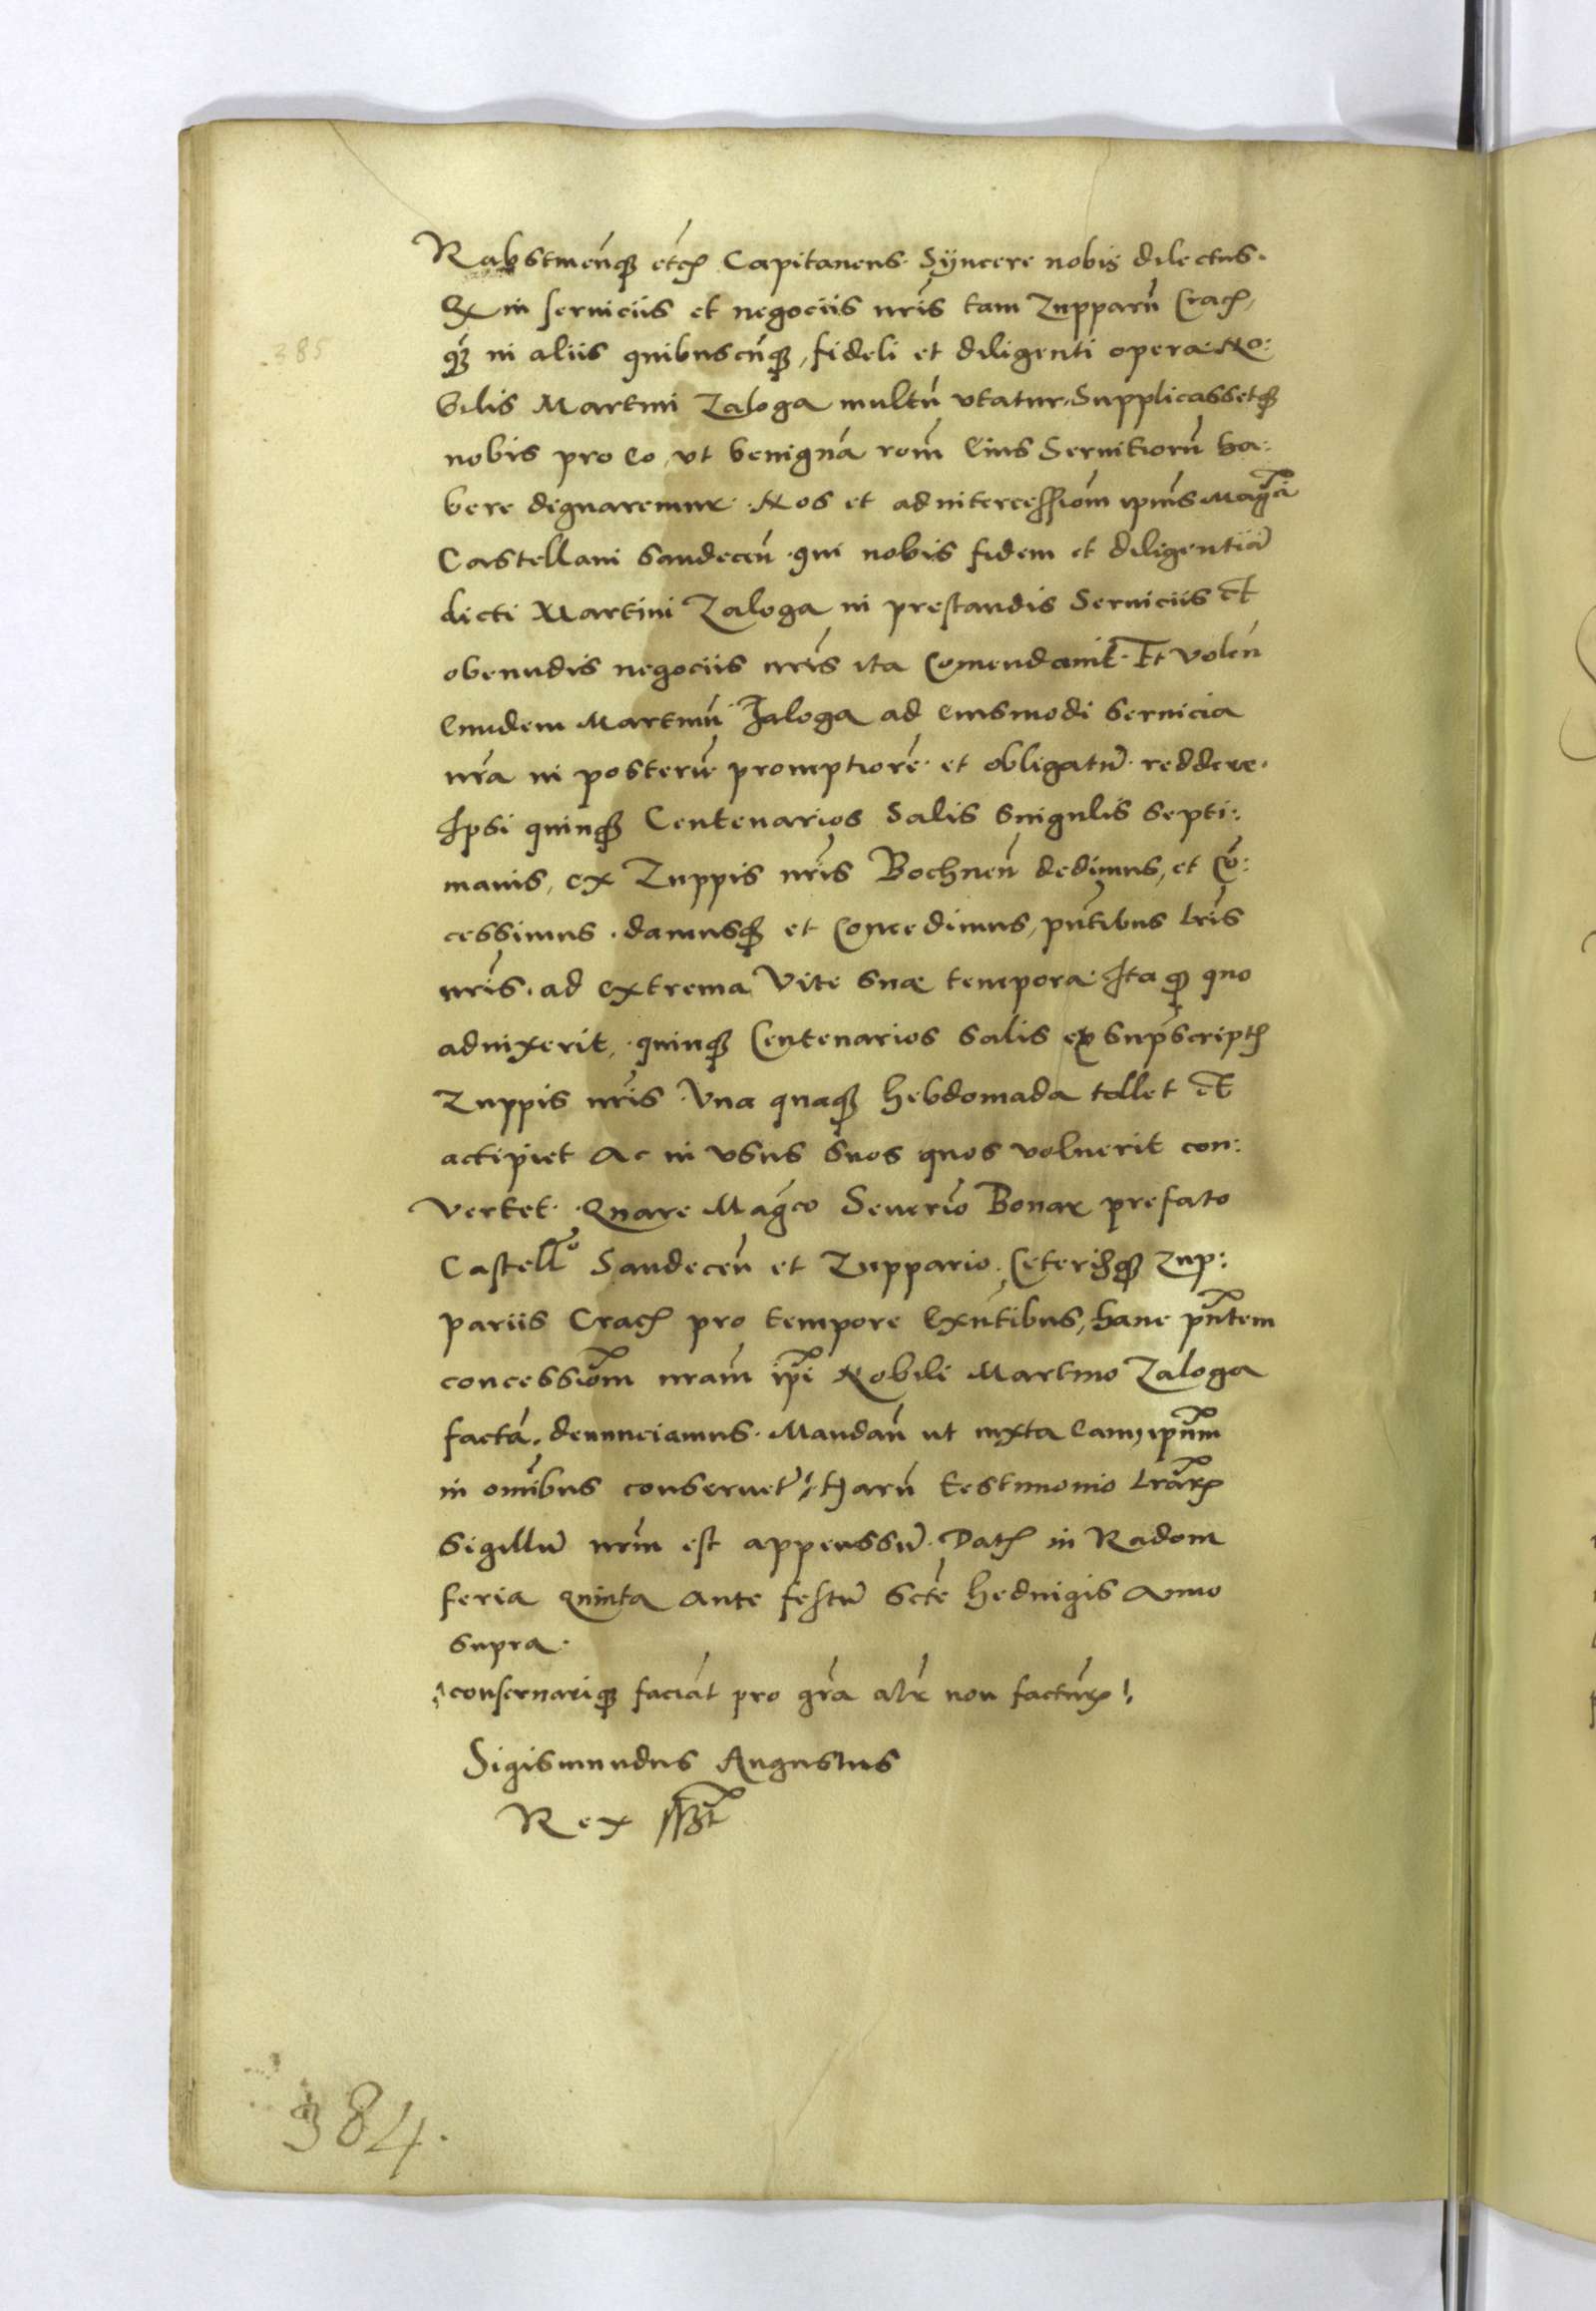 Rabstinenq3 etc Capitaneus. Syncere nobis dilectus.
Q in seruiciis et negociis nris tam Zupparu Crac,
385
q3 in aliis quibuscunq3, fideli et diligenti opera No:
bilis Martini Zaloga multu vtatur. Supplicassetq3
nobis pro eo, vt benigna rom eius Seruitioru ha:
bere dignaremur. Nos et ad intercessiom ipius Magci
Castellani Sandecen qui nobis fidem et diligentia
dicti Martini Zaloga in prestandis Seruiciis et
obeundis negociis nris ita Comendauit. Et volen
Eundem Martinu Zaloga ad eiusmodi seruicia
nra in posteru promptiore et obligatu reddere.
Ipsi quinq3 Centenarios Salis singulis septi:
manis, ex Zuppis nris Bochnen dedimus, et Co:
cessimus. damusq3 et Concedimus, pntibus lris
nris. ad extrema Vite suae tempora. Ita q3 quo
aduixerit, quinq3 Centenarios salis ex supscript
Zuppis nris Vna quaq3 hebdomada tollet et
actipiet Ac in vsus suos quos voluerit con:
vertet. Quare Magco Seuerio Bonar prefato
Castello Sandecen et Zuppario. Ceterisq3 Zup:
pariis Crac pro tempore Exntibus, hanc pntem
concessiom nram ipi Nobili Martino Zaloga
facta. denunciamus. Mandan ut iuxta eam, ipum
in omibus conseruet Haru testimonio lrar
Sigillu nrm est appenssu. Dat in Radom
feria quinta ante festu Scte Heduigis Anno
supra.
conseruariq3 faciat pro gra alr non factur
Sigismundus Augustus
Rex sszt
384.